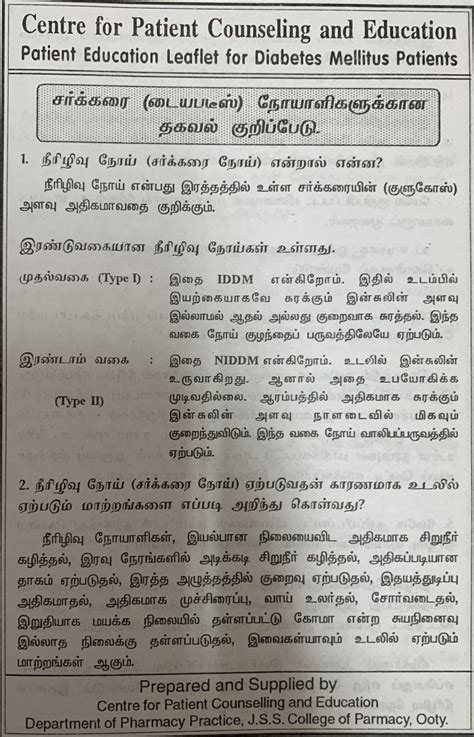 Centre for Patient Counseling and Education
Patient Education Leaflet for Diabetes Mellitus Patients
சர்க்கரை (டையபடீஸ்) நோயாளிகளுக்கான
தகவல் குறிப்பேடு.
1. நீரிழிவு நோய் (சர்க்கரை நோய்) என்றால் என்ன?
நீரிழிவு நோய் என்பது இரத்தத்தில் உள்ள சர்க்கரையின் (குளுகோஸ்)
அளவு அதிகமாவதை குறிக்கும்.
இரண்டுவகையான நீரிழிவு நோய்கள் உள்ளது.
முதல்வகை (Type I) : இதை IDDM என்கிறோம். இதில் உடம்பில்
இயற்கையாகவே சுரக்கும் இன்சுலின் அளவு
இல்லாமல் ஆதல் அல்லது குறைவாக சுரத்தல். இந்த
வகை நோய் குழந்தைப் பருவத்திலேயே ஏற்படும்.
இரண்டாம் வகை : இதை NIDDM என்கிறோம். உடலில் இன்சுலின்
உருவாகிறது. ஆனால் அதை உபயோகிக்க
(Type II) முடிவதில்லை. ஆரம்பத்தில் அதிகமாக சுரக்கும்
இன்சுலின் அளவு நாளடைவில் மிகவும்
குறைந்துவிடும். இந்த வகை நோய் வாலிபப்பருவத்தில்
ஏற்படும்.
2. நீரிழிவு நோய் (சர்க்கரை நோய்) ஏற்படுவதன் காரணமாக உடலில்
ஏற்படும் மாற்றங்களை எப்படி அறிந்து கொள்வது?
நீரிழிவு நோயாளிகள், இயல்பான நிலையைவிட அதிகமாக சிறுநீர்
கழித்தல், இரவு நேரங்களில் அடிக்கடி சிறுநீர் கழித்தல், அதிகப்படியான
தாகம் ஏற்படுதல், இரத்த அழுத்தத்தில் குறைவு ஏற்படுதல், இதயத்துடிப்பு
அதிகமாதல், அதிகமாக முச்சிரைப்பு, வாய் உலர்தல், சோர்வடைதல்,
இறுதியாக மயக்க நிலையில் தள்ளப்பட்டு கோமா என்ற சுயநினைவு
இல்லாத நிலைக்கு தள்ளப்படுதல், இவைகள்யாவும் உடலில் ஏற்படும்
மாற்றங்கள் ஆகும்.
Prepared and Supplied by
Centre for Patient Counselling and Education
Department of Pharmacy Practice, J.S.S. College of Parmacy, Ooty.